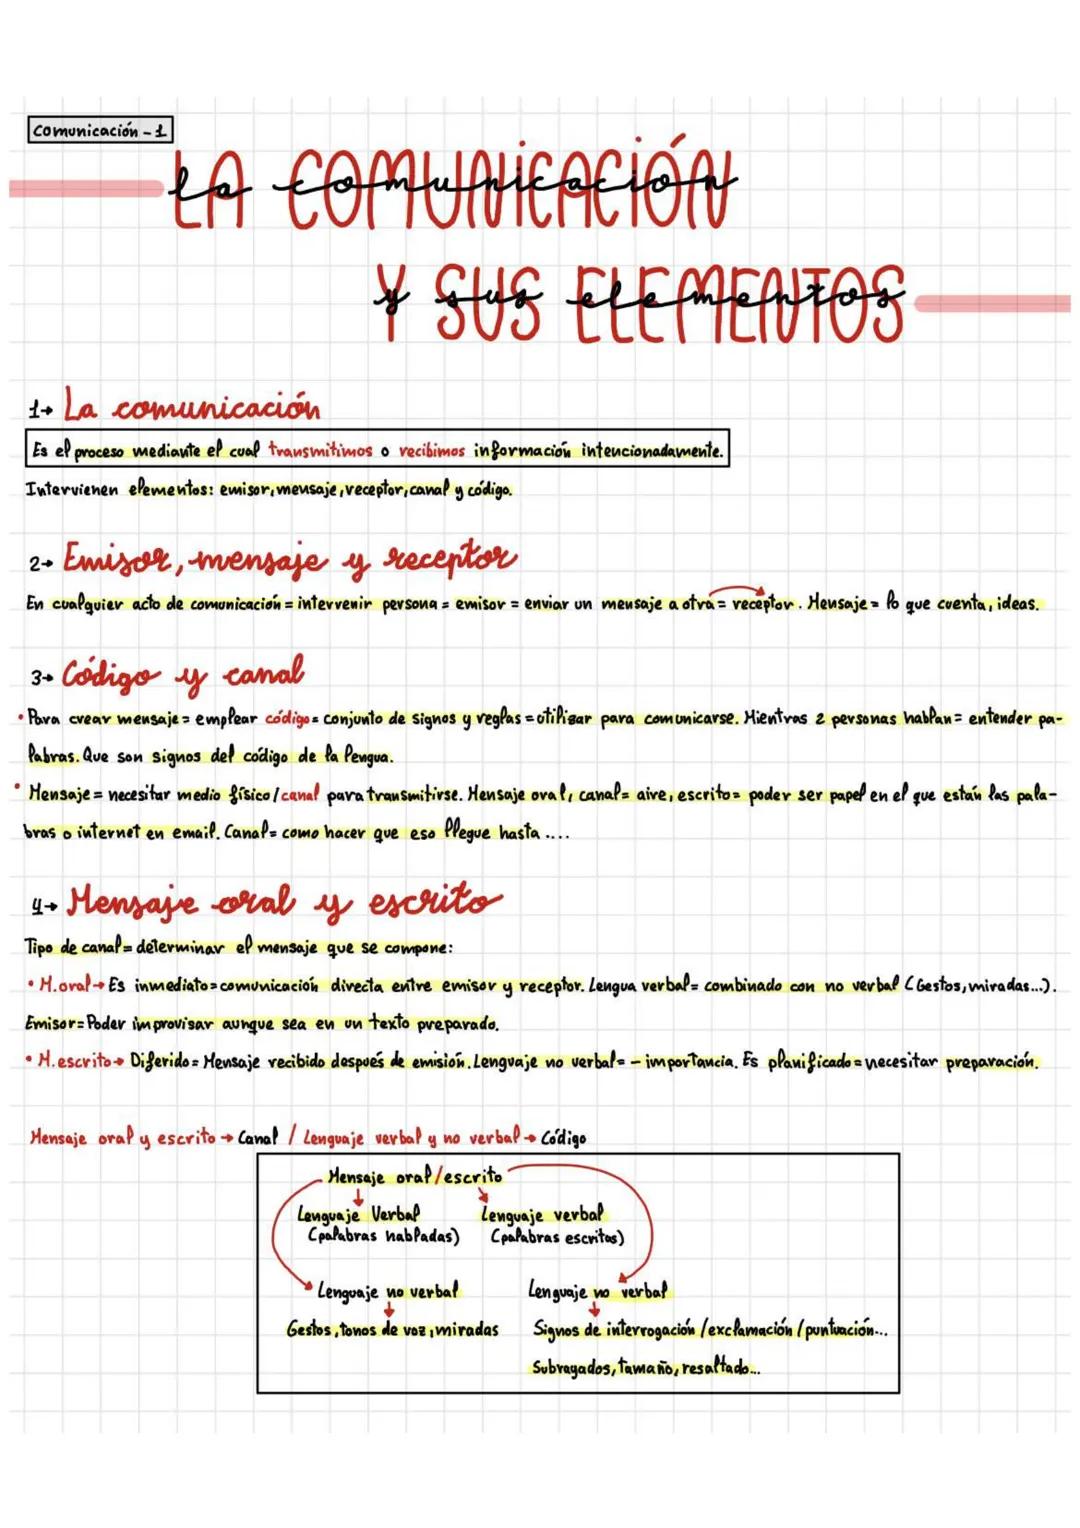 Comunicación - 1
LA COMUNICACIÓN
la comunicación
Y SUS ELEMENTOS
y sus elementos
1→ La comunicación
Es el proceso mediante el cual transmitimos o recibimos información intencionadamente.
Intervienen elementos: emisor, mensaje, receptor, canal y código.
2→ Emisor, mensaje y receptor
En cualquier acto de comunicación = intervenir persona = emisor = enviar un mensaje a otra = receptor. Mensaje = lo que cuenta, ideas.
3→ Código y canal
• Para crear mensaje = emplear código = conjunto de signos y reglas = utilizar para comunicarse. Mientras 2 personas hablan = entender pa-
labras. Que son signos del código de la lengua.
• Mensaje = necesitar medio físico/canal para transmitirse. Mensaje oral, canal = aire, escrito = poder ser papel en el que están las pala-
bras o internet en email. Canal = como hacer que eso llegue hasta ....
4→ Mensaje oral y escrito
Tipo de canal = determinar el mensaje que se compone:
• M. oral → Es inmediato = comunicación directa entre emisor y receptor. Lengua verbal = combinado con no verbal (Gestos, miradas...).
Emisor = Poder improvisar aunque sea en un texto preparado.
• M. escrito → Diferido = Mensaje recibido después de emisión. Lenguaje no verbal = - importancia. Es planificado = necesitar preparación.
Mensaje oral y escrito → Canal / Lenguaje verbal y no verbal → Código
Mensaje oral/escrito
Lenguaje Verbal Lenguaje verbal
(palabras habladas) (palabras escritas)
Lenguaje no verbal Lenguaje no verbal
Gestos, tonos de voz, miradas Signos de interrogación / exclamación / puntuación...
Subrayados, tamaño, resaltado...